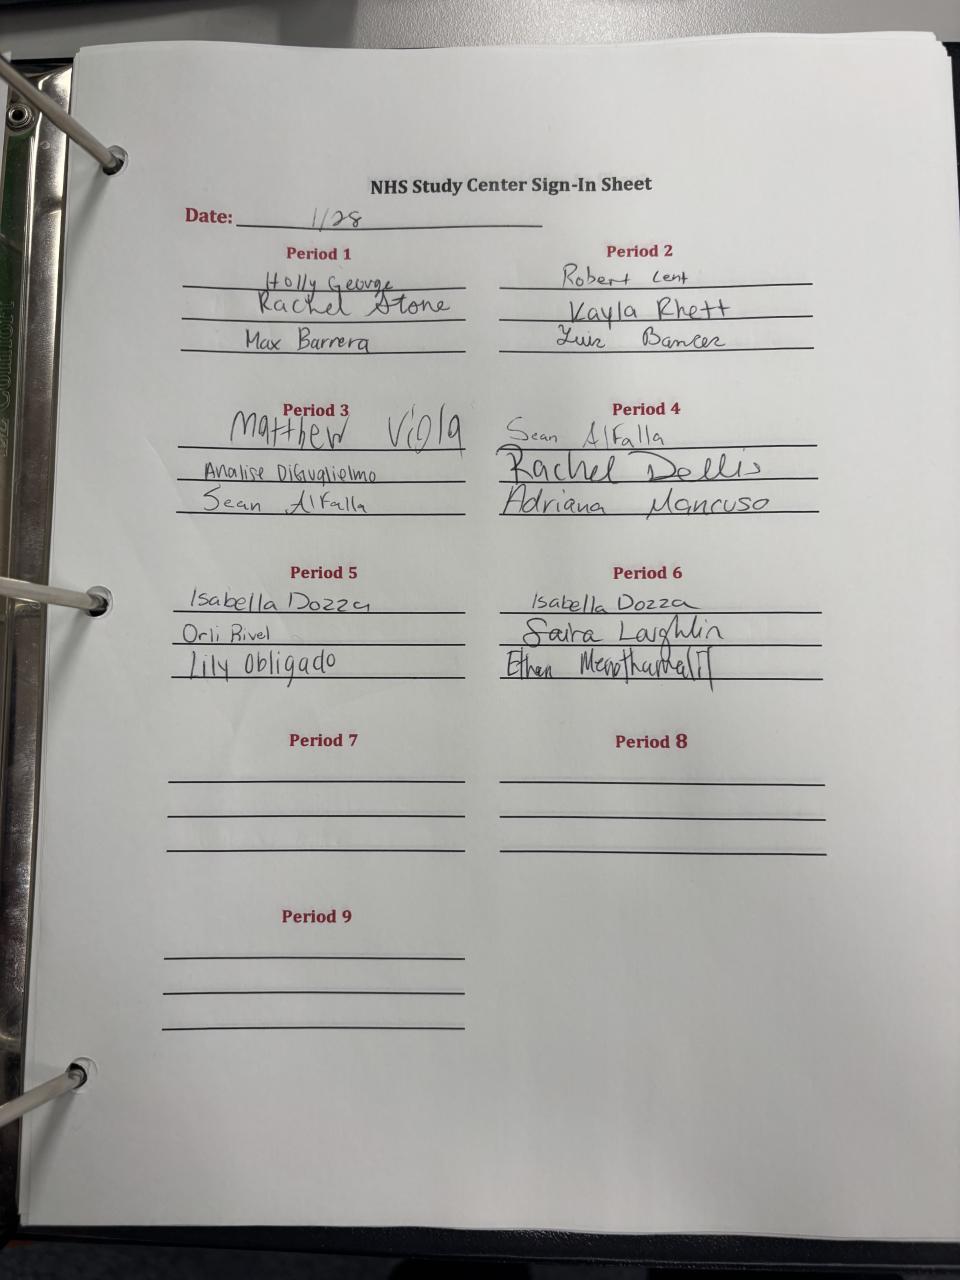 NHS Study Center Sign-In Sheet
Date: 1/28
Period 1
Holly George
Rachel Stone
Max Barrera
Period 2
Robert Lent
Kayla Rhett
Luis
Period 3
Matthew Viola
Analise DiGuglielmo
Sean Alfalla
Period 4
Sean Alfalla
Rachel Dellis
Adriana Mancuso
Period 5
Isabella Dozza
Orli Rivel
Lily Obligado
Period 6
Isabella Dozza
Saira Laughlin
Ethan
Period 7
Period 8
Period 9